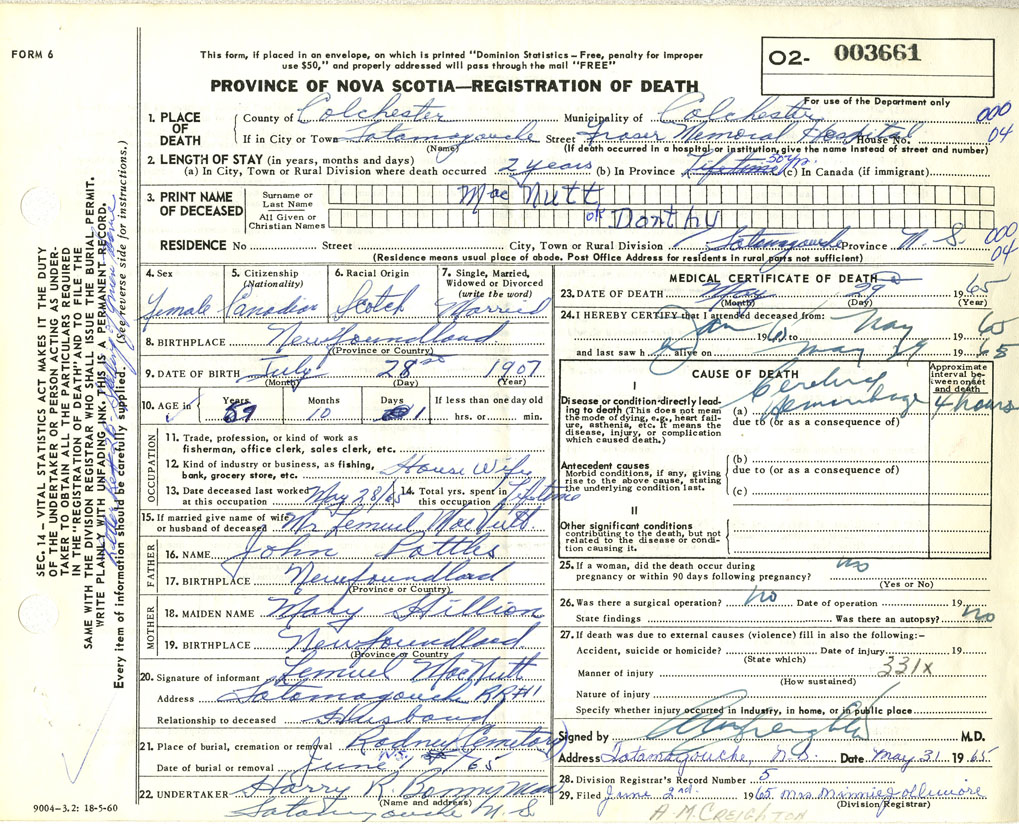 FORM 6
This form, if placed in an envelope, on which is printed "Dominion Statistics—Free, penalty for improper
use $50," and properly addressed will pass through the mail "FREE"
O2- 003661
PROVINCE OF NOVA SCOTIA—REGISTRATION OF DEATH
For use of the Department only
1. PLACE OF DEATH
County of Colchester Municipality of Colchester 000
If in City or Town Tatamagouche Street Fraser Memorial Hospital House No. 04
(Name) (If death occurred in a hospital or institution, give the name instead of street and number)
2. LENGTH OF STAY (in years, months and days)
(a) In City, Town or Rural Division where death occurred 2 years (b) In Province Lifetime 50 yr. (c) In Canada (if immigrant)
3. PRINT NAME OF DECEASED
Surname or Last Name MacNutt
All Given or Christian Names ok Dorthy
RESIDENCE No Street City, Town or Rural Division Tatamagouche Province N.S. 000 04
(Residence means usual place of abode. Post Office Address for residents in rural parts not sufficient)
4. Sex Female
5. Citizenship (Nationality) Canadian
6. Racial Origin Scotch
7. Single, Married, Widowed or Divorced (write the word) Married
8. BIRTHPLACE Newfoundland
(Province or Country)
9. DATE OF BIRTH July 28 1907
(Month) (Day) (Year)
10. AGE in Years Months Days If less than one day old
10 1 hrs. or min.
OCCUPATION
11. Trade, profession, or kind of work as
fisherman, office clerk, sales clerk, etc.
12. Kind of industry or business, as fishing,
bank, grocery store, etc. House Wife
13. Date deceased last worked at this occupation May 28/65 14. Total yrs. spent in this occupation Lifetime
15. If married give name of wife
or husband of deceased Mr Lemuel MacNutt
FATHER
16. NAME John Pottles
17. BIRTHPLACE Newfoundland
(Province or Country)
MOTHER
18. MAIDEN NAME Mary Hillion
19. BIRTHPLACE Newfoundland
(Province or Country)
20. Signature of informant Lemuel MacNutt
Address Tatamagouche RR#1
Relationship to deceased Husband
21. Place of burial, cremation or removal Rodney Cemetary
N.S.
Date of burial or removal June 65
22. UNDERTAKER Harry R. Bonnyman
(Name and address)
Tatamagouche N S
9004-3.2: 18-5-60
MEDICAL CERTIFICATE OF DEATH
23. DATE OF DEATH May 29 1965
(Month) (Day) (Year)
24. I HEREBY CERTIFY that I attended deceased from:
Jan 19 to May 1965
and last saw h alive on May 29 1965
CAUSE OF DEATH
Approximate interval between onset and death
I
Disease or condition directly leading to death (This does not
mean the mode of dying, e.g., heart failure,
asthenia, etc. It means the
disease, injury, or complication
which caused death.)
(a) Cerebral Hemorrhage 4 hours
due to (or as a consequence of)
Antecedent causes
Morbid conditions, if any, giving
rise to the above cause, stating
the underlying condition last.
(b)
due to (or as a consequence of)
(c)
II
Other significant conditions
contributing to the death, but not
related to the disease or condition
causing it.
25. If a woman, did the death occur during
pregnancy or within 90 days following pregnancy? no
(Yes or No)
26. Was there a surgical operation? no Date of operation 19
State findings Was there an autopsy? no
27. If death was due to external causes (violence) fill in also the following:—
Accident, suicide or homicide? Date of injury 19
(State which)
Manner of injury 331x
(How sustained)
Nature of injury
Specify whether injury occurred in industry, in home, or in public place
Signed by M.D.
Address Tatamagouche, N.S. Date May 31 1965
28. Division Registrar's Record Number 5
29. Filed June 2nd. 1965 Mrs Minnie
(Division Registrar)
A.M. CREIGHTON
SEC. 14 – VITAL STATISTICS ACT MAKES IT THE DUTY
OF THE UNDERTAKER OR PERSON ACTING AS UNDERTAKER
TO OBTAIN ALL THE PARTICULARS REQUIRED
IN THE "REGISTRATION OF DEATH" AND TO FILE THE
SAME WITH THE DIVISION REGISTRAR WHO SHALL ISSUE THE BURIAL PERMIT.
WRITE PLAINLY WITH UNFADING INK. THIS IS A PERMANENT RECORD.
Every item of information should be carefully supplied. (See reverse side for instructions.)